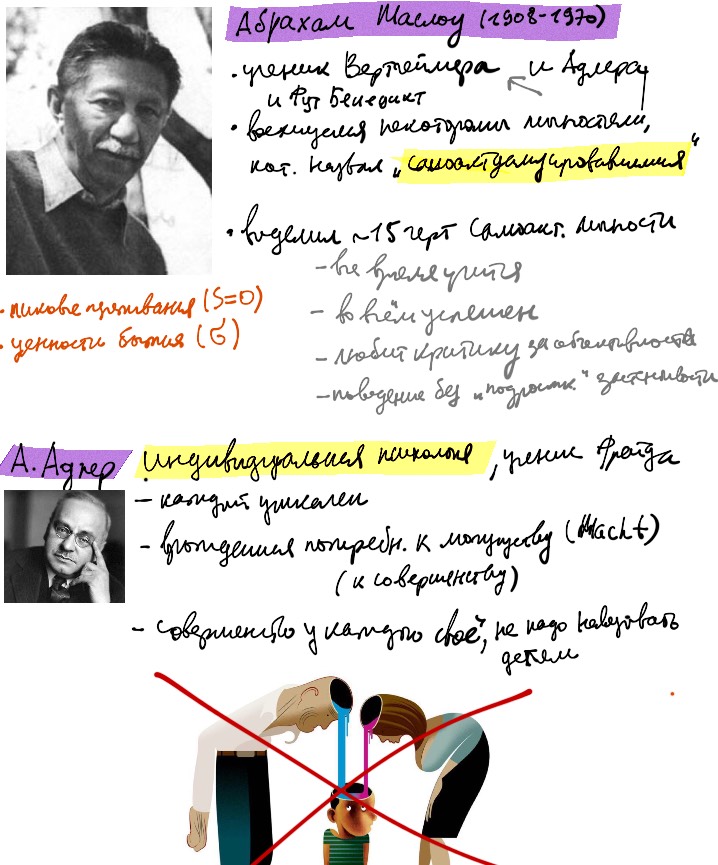 Абрахам Маслоу (1908-1970)
• ученик Вертгеймера и Адлера
и Рут Бенедикт
• восхищался некоторыми личностями,
кот. назвал „самоактуализировавшимися“
• выделил ~15 черт самоакт. личности
- всё время учится
- во всём успешен
- любит критику за объективность
- поведение без „подростк“ застенчивости
• пиковые переживания (S=O)
• ценности бытия (б)
А. Адлер Индивидуальная психология, ученик Фрейда
- каждый уникален
- врождённая потребн. к могуществу (Macht)
(к совершенству)
- совершенство у каждого своё, не надо навязывать
детям